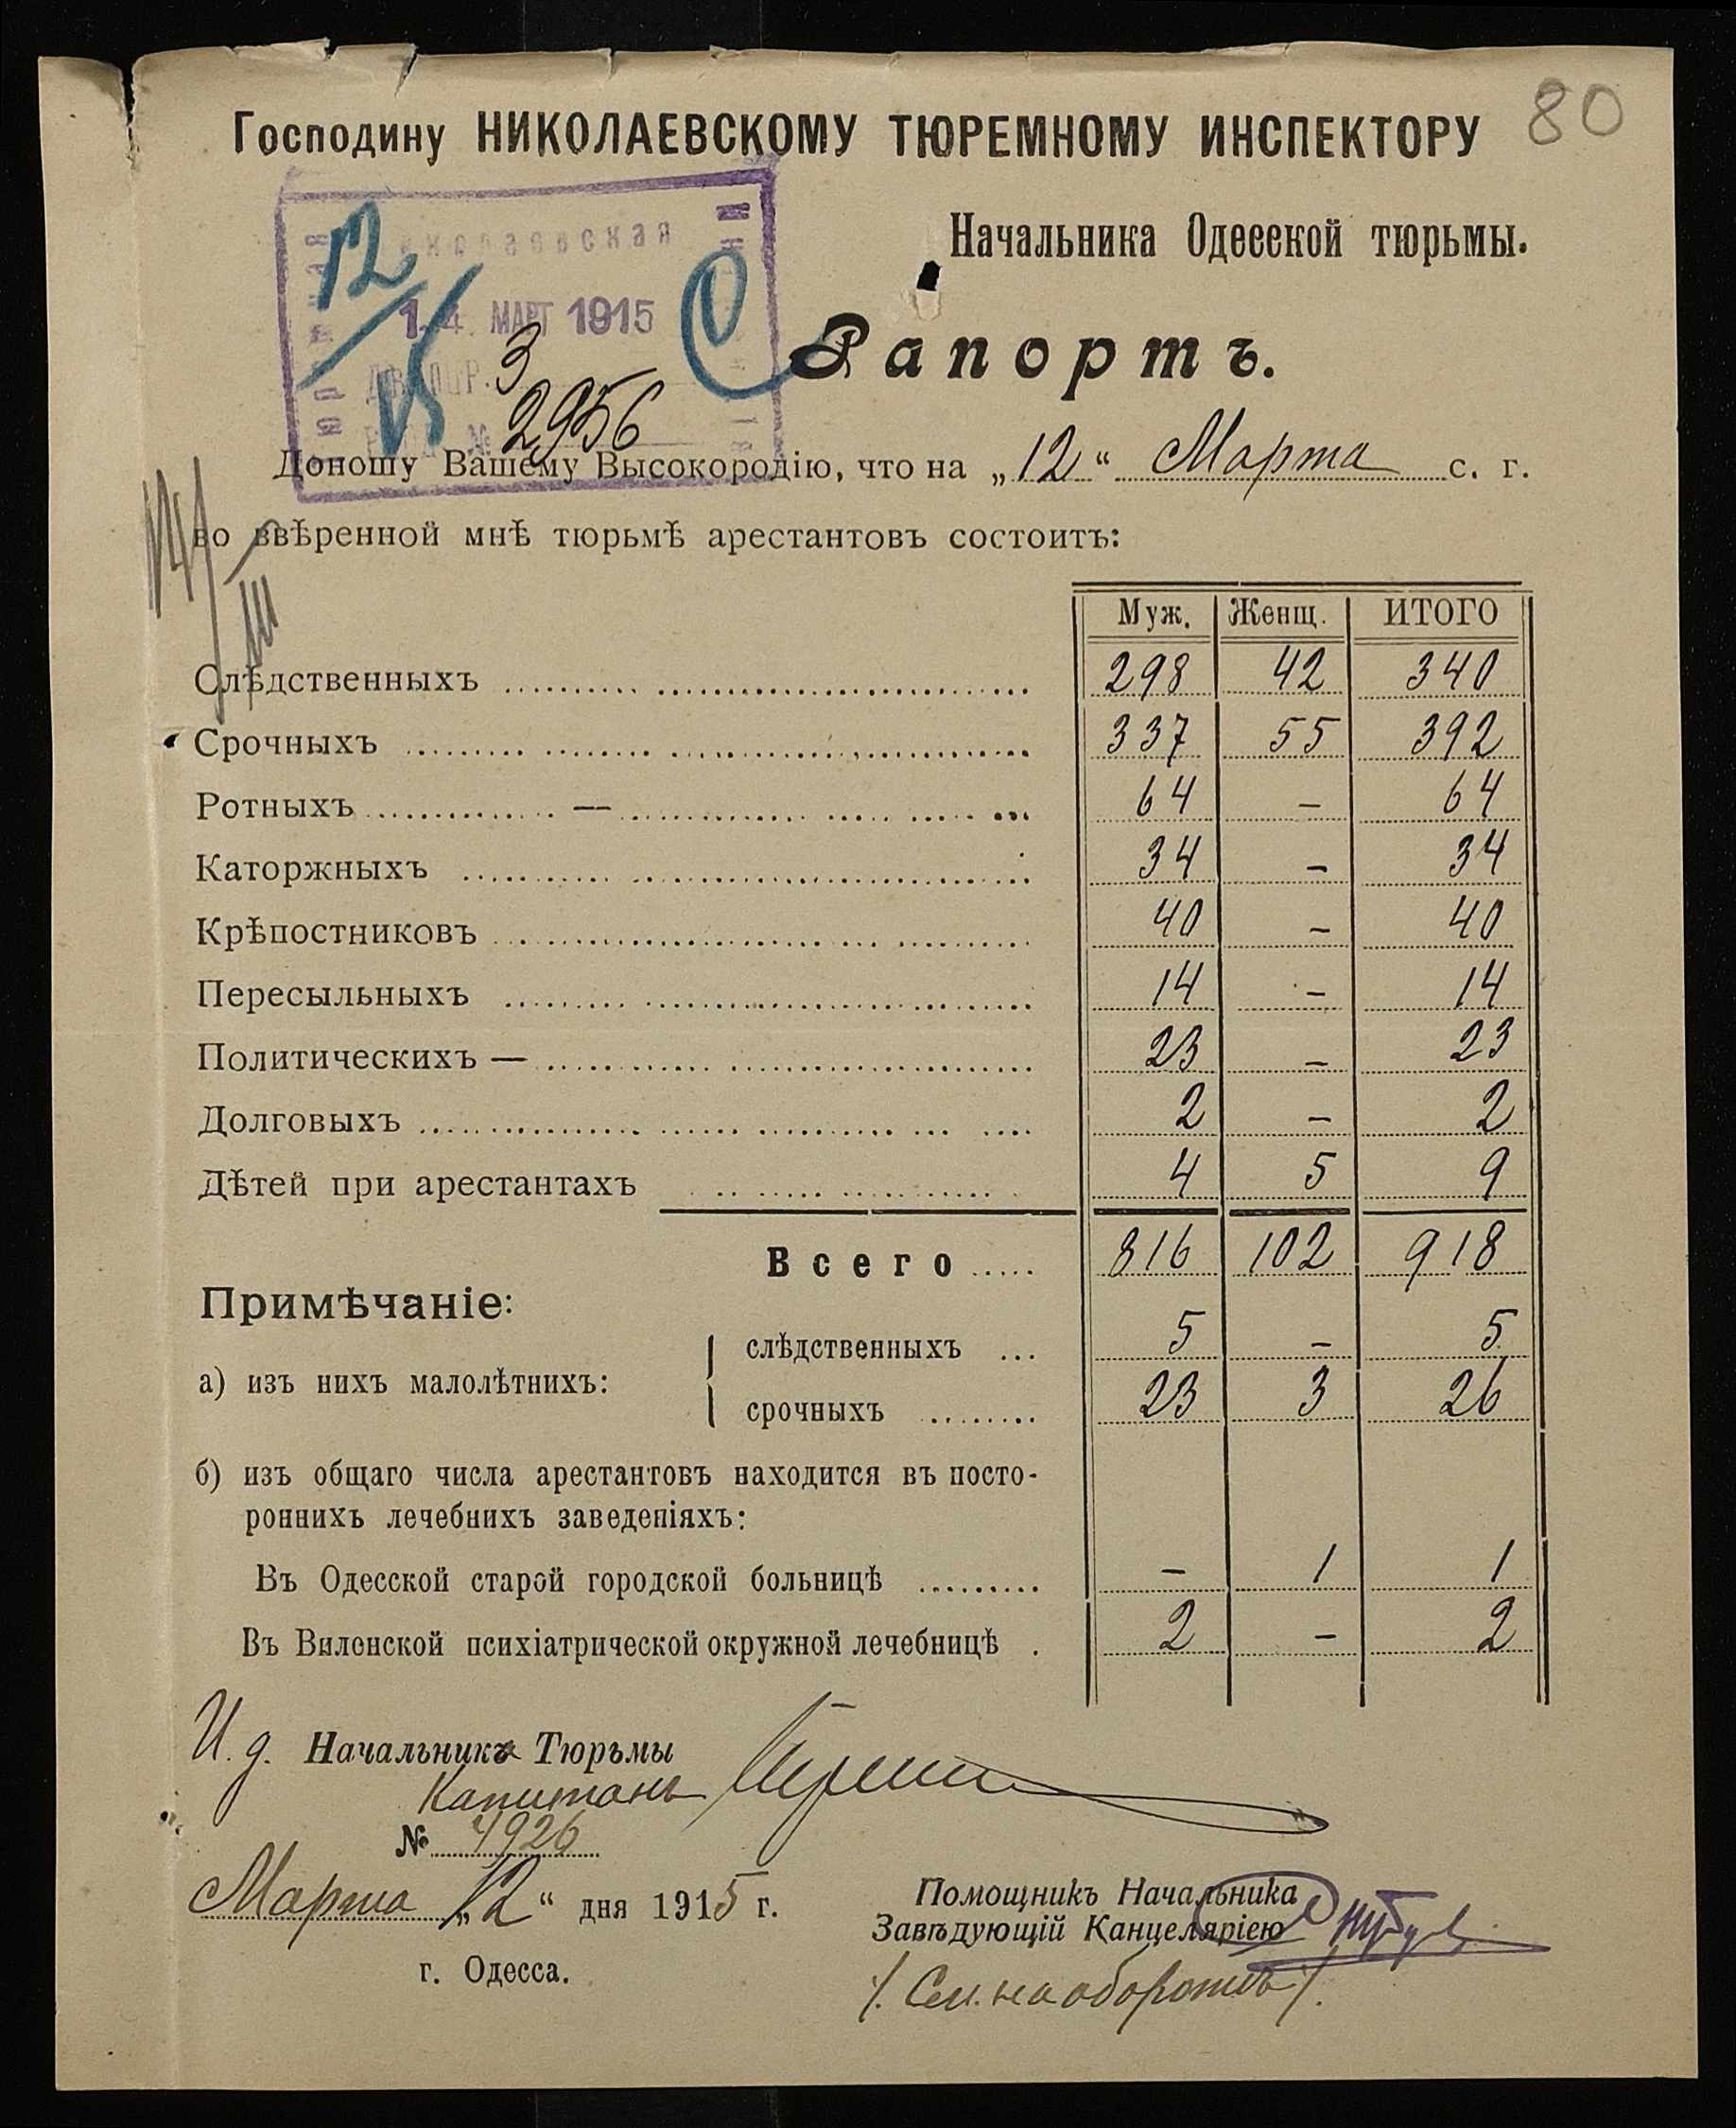 80
Господину НИКОЛАЕВСКОМУ ТЮРЕМНОМУ ИНСПЕКТОРУ
Начальника Одесской тюрьмы.
Николаевская
14 МАРТ 1915
3
2956
12
Рапортъ.
Доношу Вашему Высокородію, что на „12“ Марта с. г.
во ввѣренной мнѣ тюрьмѣ арестантовъ состоитъ:
Муж. Женщ. ИТОГО
Слѣдственныхъ 298 42 340
Срочныхъ 337 55 392
Ротныхъ — 64 – 64
Каторжныхъ 34 – 34
Крѣпостниковъ 40 – 40
Пересыльныхъ 14 – 14
Политическихъ — 23 – 23
Долговыхъ 2 – 2
Дѣтей при арестантахъ 4 5 9
Всего 816 102 918
Примѣчаніе:
а) изъ нихъ малолѣтнихъ:
слѣдственныхъ 5 – 5
срочныхъ 23 3 26
б) изъ общаго числа арестантовъ находится въ посто-
роннихъ лечебнихъ заведеніяхъ:
Въ Одесской старой городской больницѣ – 1 1
Въ Виленской психіатрической окружной лечебницѣ 2 – 2
И. д. Начальника Тюрьмы
Капитанъ
№ 4926
Марта „12“ дня 1915 г.
г. Одесса.
Помощникъ Начальника
Завѣдующій Канцеляріею
/. См. на оборотѣ /.